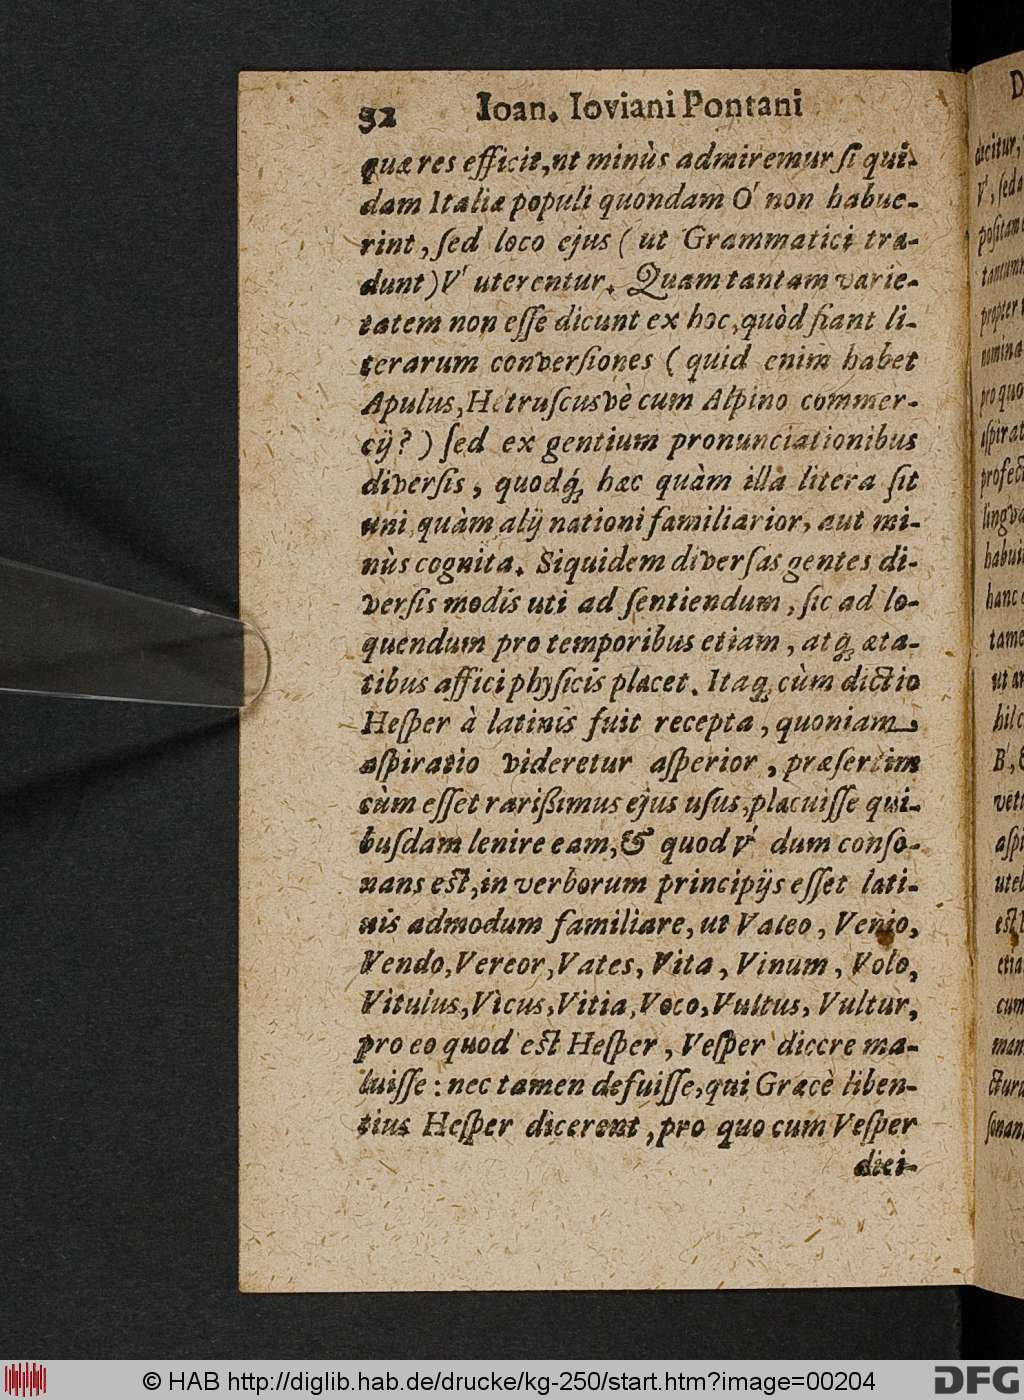 92 Ioan. Ioviani Pontani
quæ res efficit, ut minùs admiremur ſi qui-
dam Italiæ populi quondam O' non habue-
rint, ſed loco ejus (ut Grammatici tra-
dunt) V' uterentur. Quam tantam varie-
tatem non eſſe dicunt ex hoc, quòd fiant li-
terarum converſiones (quid enim habet
Apulus, Hetruſcusvè cum Alpino commer-
cij?) ſed ex gentium pronunciationibus
diverſis, quodq́; hæc quàm illa litera ſit
uni quàm alij nationi familiarior, aut mi-
nùs cognita. Siquidem diverſas gentes di-
verſis modis uti ad ſentiendum, ſic ad lo-
quendum pro temporibus etiam, atq́; æta-
tibus affici phyſicis placet. Itaq; cùm dictio
Heſper à latinis fuit recepta, quoniam
aſpiratio videretur aſperior, præſertim
cùm eſſet rarißimus ejus uſus, placuiſſe qui-
buſdam lenire eam, & quod V' dum conſo-
nans eſt, in verborum principijs eſſet lati-
nis admodum familiare, ut Valeo, Venio,
Vendo, Vereor, Vates, Vita, Vinum, Volo,
Vitulus, Vicus, Vitia, Voco, Vultus, Vultur,
pro eo quod eſt Heſper, Veſper dicere ma-
luiſſe: nec tamen defuiſſe, qui Græcè liben-
tius Heſper dicerent, pro quo cum Veſper
dici-
© HAB http://diglib.hab.de/drucke/kg-250/start.htm?image=00204
DFG